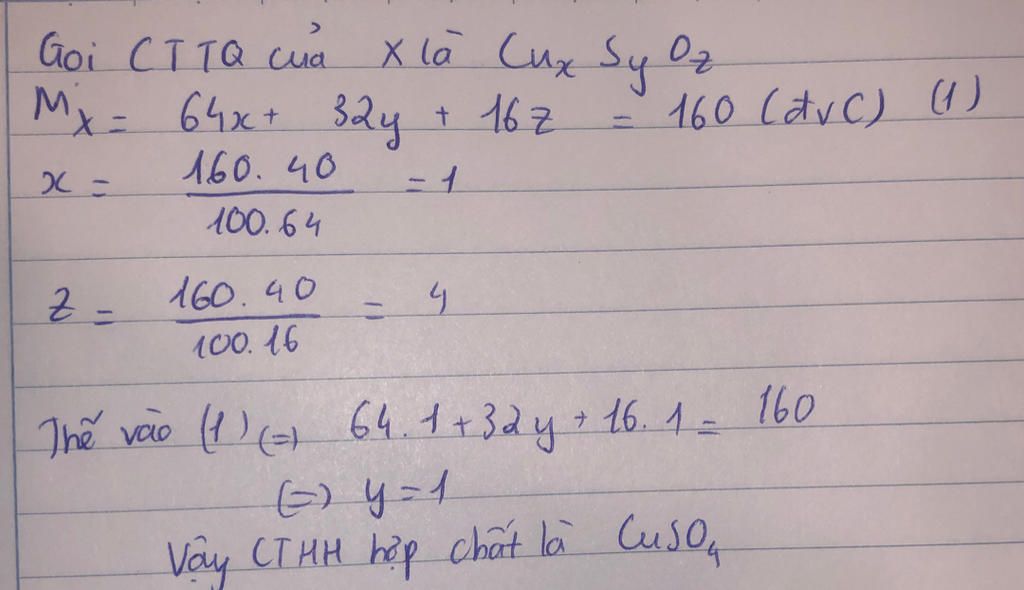 Gọi CTTQ của X là CuxSyOz
MX = 64x + 32y + 16z = 160 (đvC) (1)
x = 160.40 / 100.64 = 1
z = 160.40 / 100.16 = 4
Thế vào (1) (=) 64.1 + 32y + 16.1 = 160
(=) y = 1
Vậy CTHH hợp chất là CuSO4